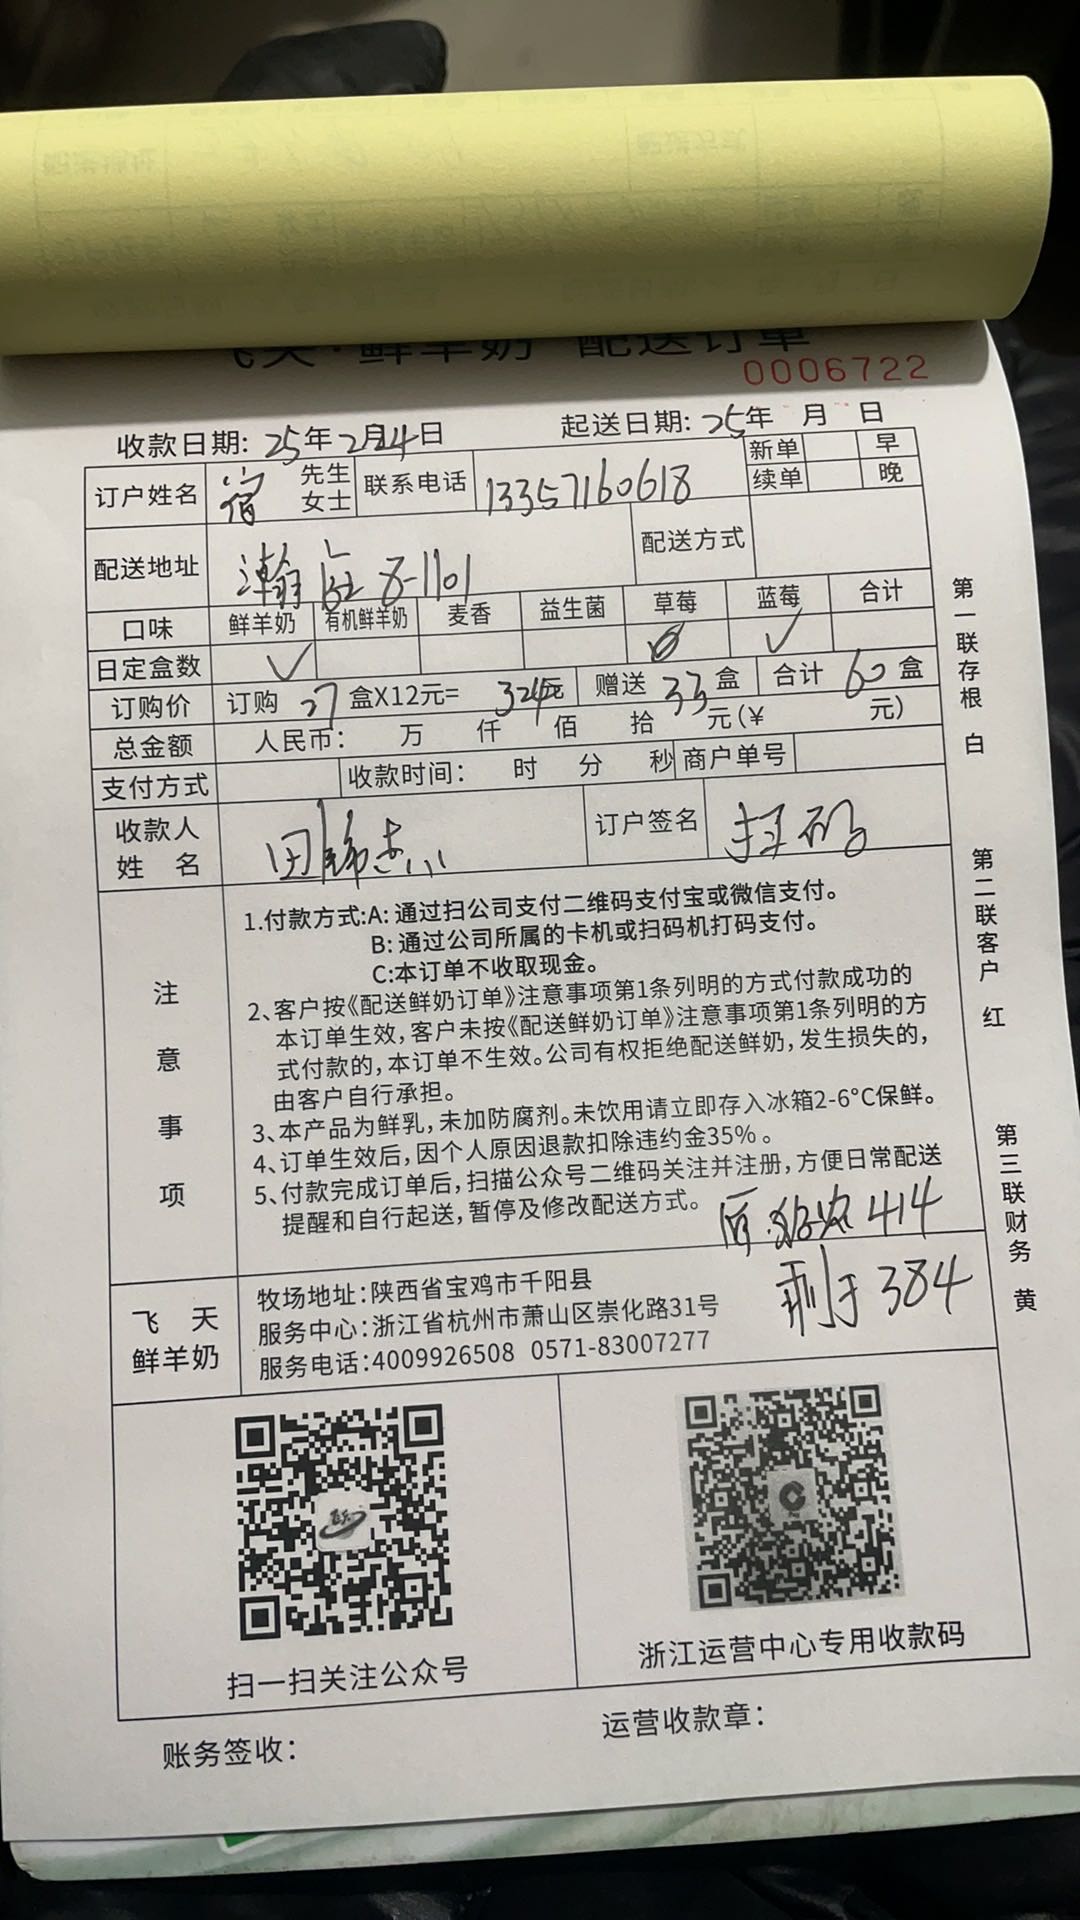 飞天·鲜羊奶 配送订单
0006722
收款日期: 25年2月14日 起送日期: 25年 月 日
新单 早
续单 晚
订户姓名 宿 先生 女士 联系电话 13357160618
配送地址 瀚 8-1101 配送方式
口味 鲜羊奶 有机鲜羊奶 麦香 益生菌 草莓 蓝莓 合计
日定盒数 ✓ ✓
订购价 订购 27 盒X12元= 324元 赠送 33 盒 合计 60 盒
总金额 人民币: 万 仟 佰 拾 元(¥ 元)
支付方式 收款时间: 时 分 秒 商户单号
收款人姓名 田 订户签名 扫码
注意事项
1.付款方式:A: 通过扫公司支付二维码支付宝或微信支付。
B: 通过公司所属的卡机或扫码机打码支付。
C:本订单不收取现金。
2、客户按《配送鲜奶订单》注意事项第1条列明的方式付款成功的
本订单生效,客户未按《配送鲜奶订单》注意事项第1条列明的方
式付款的,本订单不生效。公司有权拒绝配送鲜奶,发生损失的,
由客户自行承担。
3、本产品为鲜乳,未加防腐剂。未饮用请立即存入冰箱2-6°C保鲜。
4、订单生效后,因个人原因退款扣除违约金35%。
5、付款完成订单后,扫描公众号二维码关注并注册,方便日常配送
提醒和自行起送,暂停及修改配送方式。
414
剩于384
飞天鲜羊奶
牧场地址:陕西省宝鸡市千阳县
服务中心:浙江省杭州市萧山区崇化路31号
服务电话:4009926508 0571-83007277
扫一扫关注公众号
浙江运营中心专用收款码
账务签收:
运营收款章:
第一联存根 白
第二联客户 红
第三联财务 黄